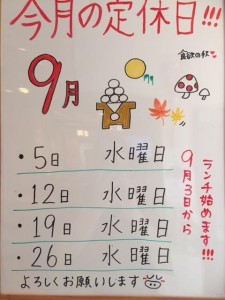 今月の定休日!!!
食欲の秋
9月
・5日 水曜日
・12日 水曜日
・19日 水曜日
・26日 水曜日
ランチ始めます!!!
9月3日から
よろしくお願いします